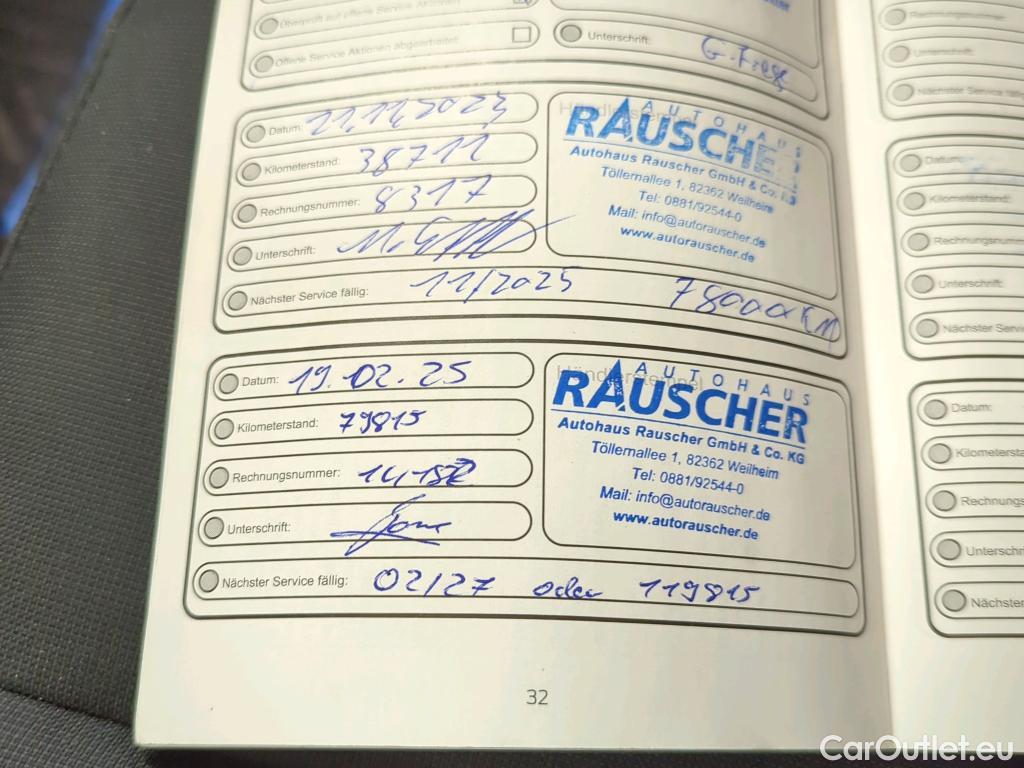 Überprüft auf offene Service Aktionen
Offene Service Aktionen abgearbeitet:
Unterschrift:
Datum: 21.11.2023
Kilometerstand: 38711
Rechnungsnummer: 8317
Unterschrift:
Nächster Service fällig: 11/2025 78000 KM
Händlerstempel
AUTOHAUS
RAUSCHER
Autohaus Rauscher GmbH & Co. KG
Töllernallee 1, 82362 Weilheim
Tel: 0881/92544-0
Mail: info@autorauscher.de
www.autorauscher.de
Datum: 19.02.25
Kilometerstand: 79815
Rechnungsnummer:
Unterschrift:
Nächster Service fällig: 02/27 oder 119815
Händlerstempel
AUTOHAUS
RAUSCHER
Autohaus Rauscher GmbH & Co. KG
Töllernallee 1, 82362 Weilheim
Tel: 0881/92544-0
Mail: info@autorauscher.de
www.autorauscher.de
32
Rechnungsnummer
Unterschrift:
Nächster Service fällig
Datum:
Kilometerstand:
Rechnungsnumm
Unterschrift:
Nächster Servi
Datum:
Kilometersta
Rechnungsn
Unterschri
Nächster
CarOutlet.eu